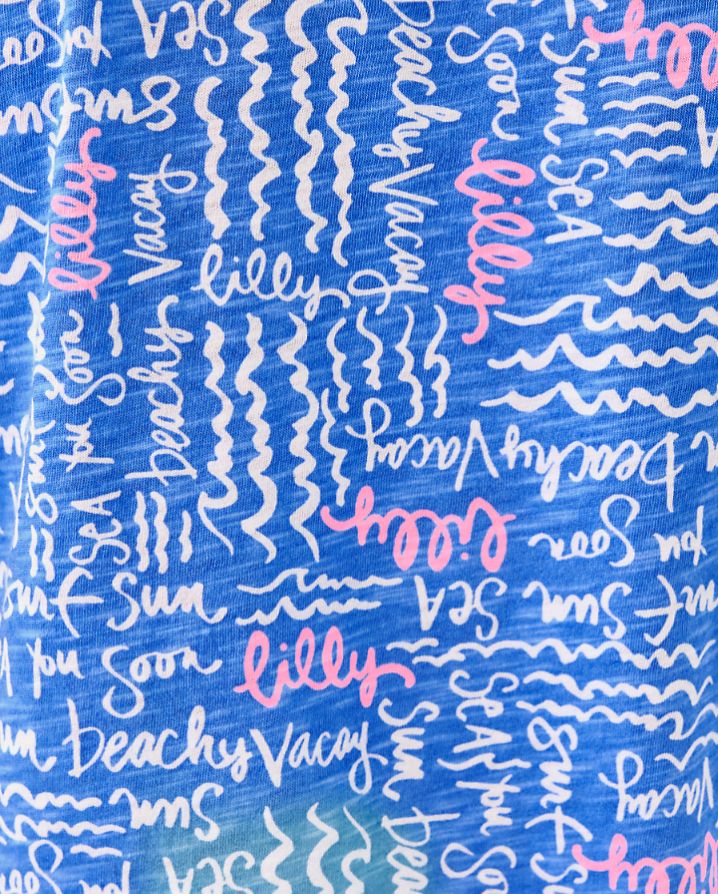 SEA you Soon
SEA
lilly
Beachy Vacay
Soon
Sun SEA
Surf Sun
lilly
Vacay
lilly
lilly
SEA you Soon
Beachy
Beachy Vacay
Sun
you Soon
lilly
Surf Sun
SEA
Surf Sun
SEA you Soon
lilly
Sun Beachy Vacay
Sun Bea
SEA you Soon
Surf
Vacay
Sun
SEA
lilly